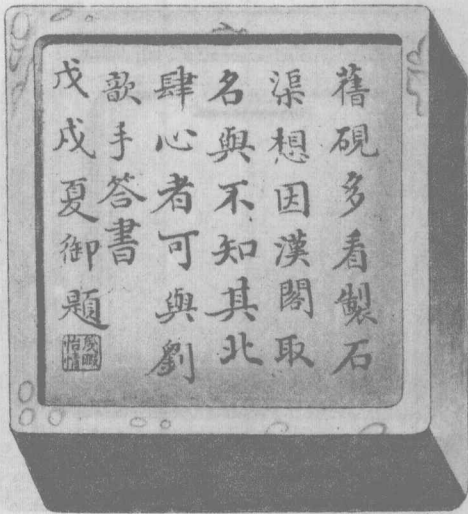 舊硯多看製石
渠想因漢閣取
名與不知其北
肆心者可與劉
歆手答書
戊戌夏御題
幾暇怡情